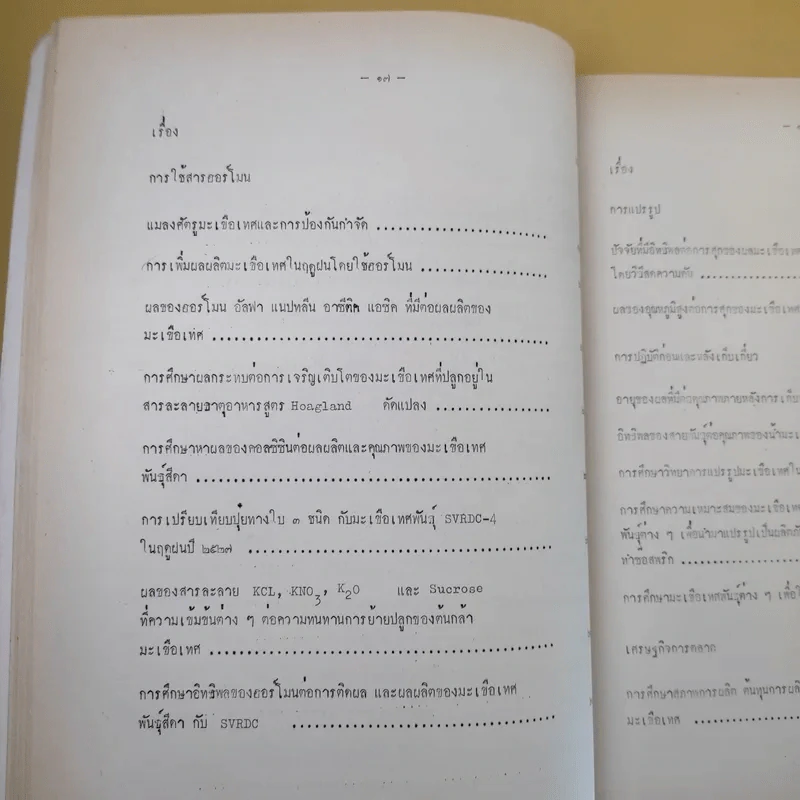 - ๑๗ -
เรื่อง
การใช้สารฮอร์โมน
แมลงศัตรูมะเขือเทศและการป้องกันกำจัด ........................
การเพิ่มผลผลิตมะเขือเทศในฤดูฝนโดยใช้ฮอร์โมน ..................
ผลของฮอร์โมน อัลฟา แนปทลีน อาซีติค แอซิค ที่มีต่อผลผลิตของ
มะเขือเทศ ..................................................
การศึกษาผลกระทบต่อการเจริญเติบโตของมะเขือเทศที่ปลูกอยู่ใน
สารละลายธาตุอาหารสูตร Hoagland ดัดแปลง ................
การศึกษาหาผลของคอลชิซินต่อผลผลิตและคุณภาพของมะเขือเทศ
พันธุ์สีดา ..................................................
การเปรียบเทียบปุ๋ยทางใบ ๓ ชนิด กับมะเขือเทศพันธุ์ SVRDC-4
ในฤดูฝนปี ๒๕๒๗ ..........................................
ผลของสารละลาย KCL, KNO3, K2O และ Sucrose
ที่ความเข้มข้นต่าง ๆ ต่อความทนทานการย้ายปลูกของต้นกล้า
มะเขือเทศ ..................................................
การศึกษาอิทธิพลของฮอร์โมนต่อการติดผล และผลผลิตของมะเขือเทศ
พันธุ์สีดา กับ SVRDC ....................................
เรื่อง
การแปรรูป
ปัจจัยที่มีอิทธิพลต่อการสุกของผลมะเขือเทศ
โดยวิธีลดความดัน ................
ผลของอุณหภูมิสูงต่อการสุกของมะเขือเทศ
การปฏิบัติก่อนและหลังเก็บเกี่ยว
อายุของผลที่มีต่อคุณภาพภายหลังการเก็บ
อิทธิพลของสายพันธุ์ต่อคุณภาพของน้ำมะเ
การศึกษาวิทยาการแปรรูปมะเขือเทศใน
การศึกษาความเหมาะสมของมะเขือเทศ
พันธุ์ต่าง ๆ เพื่อนำมาแปรรูปเป็นผลิตภั
ทำซอสพริก ....................
การศึกษามะเขือเทศพันธุ์ต่าง ๆ เพื่อใ
เศรษฐกิจการตลาด
การศึกษาสภาพการผลิต ต้นทุนการผลิ
มะเขือเทศ ................